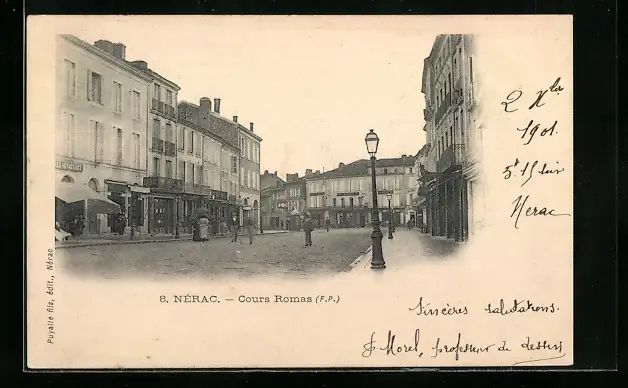 2 Xbre
1901.
Nérac
8. NÉRAC. – Cours Romas (F.P.)
Puyalle fils, édit., Nérac
Sincères salutations.
J. Morel, professeur de dessin